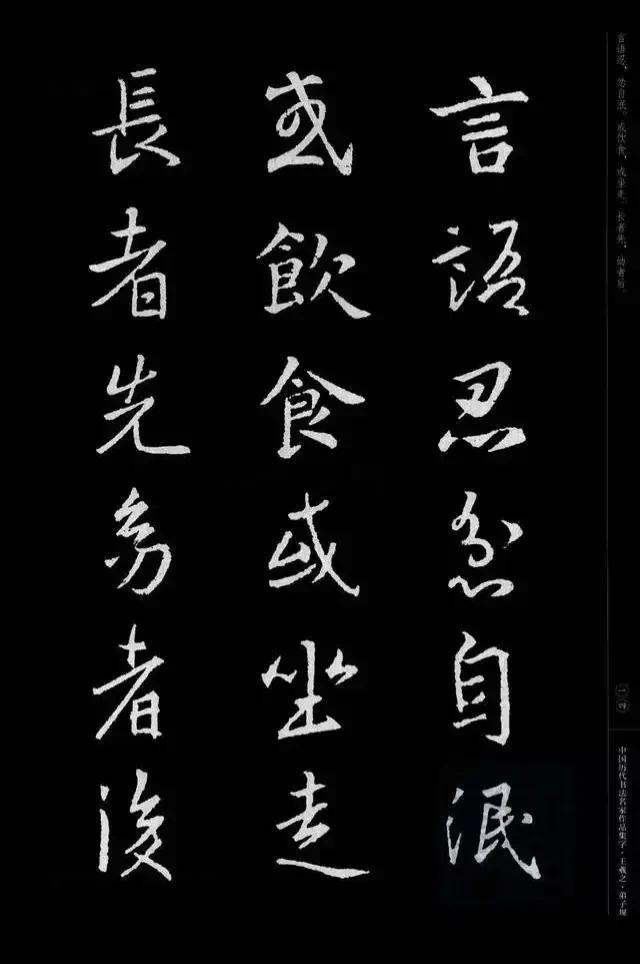 言语忍，忿自泯。或饮食，或坐走。长者先，幼者后。
言語忍忿自泯
或飲食或坐走
長者先幼者後
一四
中国历代书法名家作品集字·王羲之·弟子规